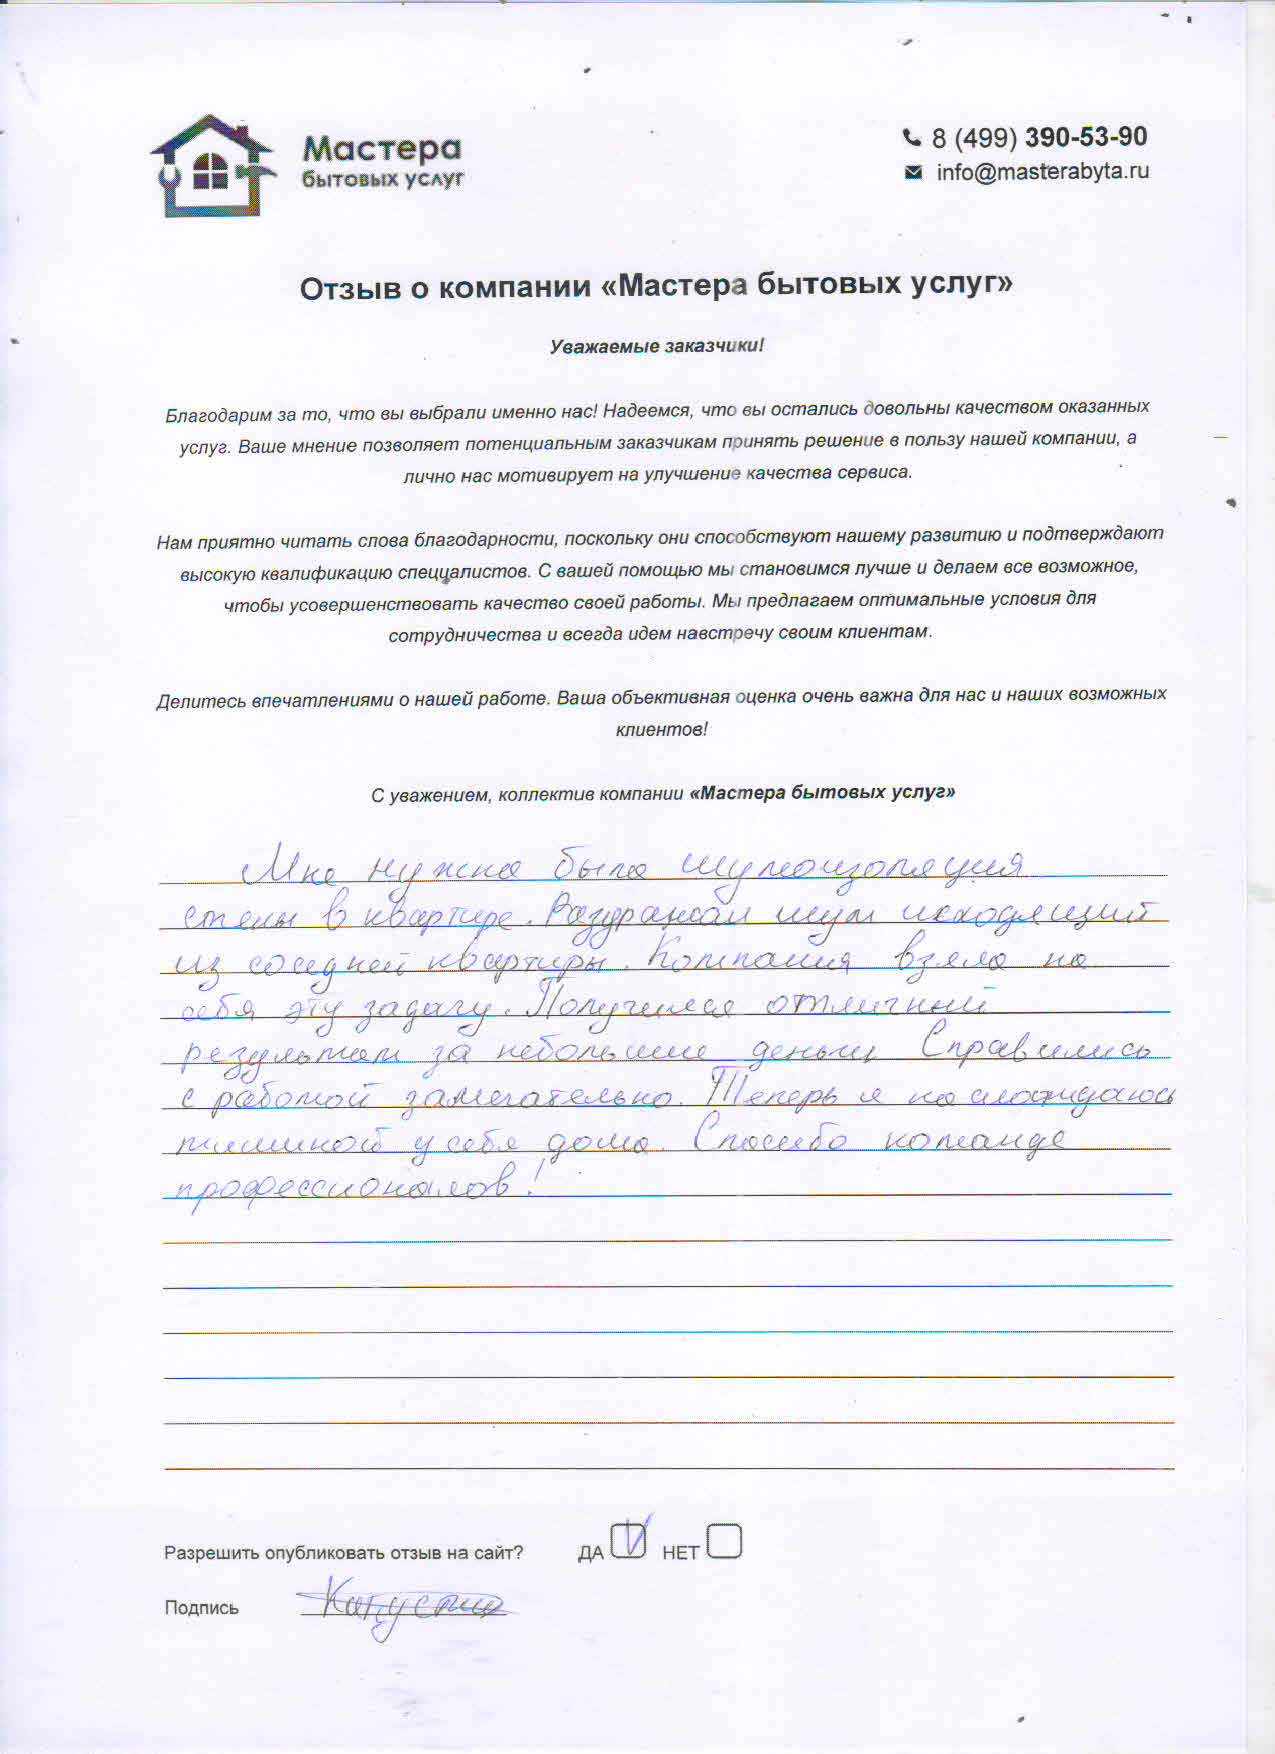 Мастера
бытовых услуг
8 (499) 390-53-90
info@masterabyta.ru
Отзыв о компании «Мастера бытовых услуг»
Уважаемые заказчики!
Благодарим за то, что вы выбрали именно нас! Надеемся, что вы остались довольны качеством оказанных
услуг. Ваше мнение позволяет потенциальным заказчикам принять решение в пользу нашей компании, а
лично нас мотивирует на улучшение качества сервиса.
Нам приятно читать слова благодарности, поскольку они способствуют нашему развитию и подтверждают
высокую квалификацию специалистов. С вашей помощью мы становимся лучше и делаем все возможное,
чтобы усовершенствовать качество своей работы. Мы предлагаем оптимальные условия для
сотрудничества и всегда идем навстречу своим клиентам.
Делитесь впечатлениями о нашей работе. Ваша объективная оценка очень важна для нас и наших возможных
клиентов!
С уважением, коллектив компании «Мастера бытовых услуг»
Мне нужна была шумоизоляция
стены в квартире. Раздражал шум исходящий
из соседней квартиры. Компания взяла на
себя эту задачу. Получился отличный
результат за небольшие деньги. Справились
с работой замечательно. Теперь я наслаждаюсь
тишиной у себя дома. Спасибо команде
профессионалов!
Разрешить опубликовать отзыв на сайт? ДА V НЕТ
Подпись Капустин